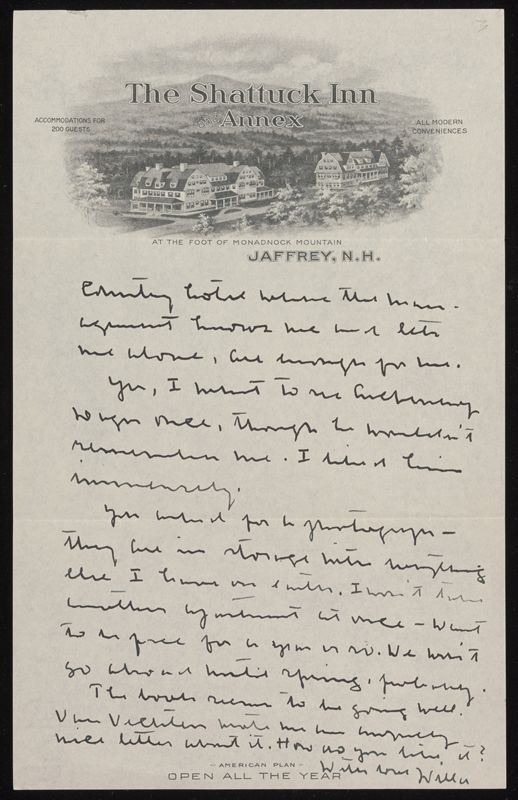 The Shattuck Inn
and Annex
ACCOMMODATIONS FOR
200 GUESTS
ALL MODERN
CONVENIENCES
AT THE FOOT OF MONADNOCK MOUNTAIN
JAFFREY, N.H.
Country hotel where the man-
agement knows me and lets
me alone, are enough for me.
Yes, I went to see
once, though he wouldn't
remember me. I liked him
immensely.
You asked for a photograph -
they are in storage with everything
else I have on earth. I won't take
another apartment at once - want
to be free for a year or so. We won't
go abroad until spring, probably.
The book seems to be going well.
Van Vechten wrote me an
nice letter about it. How do you like it?
With love Willa
- AMERICAN PLAN -
OPEN ALL THE YEAR